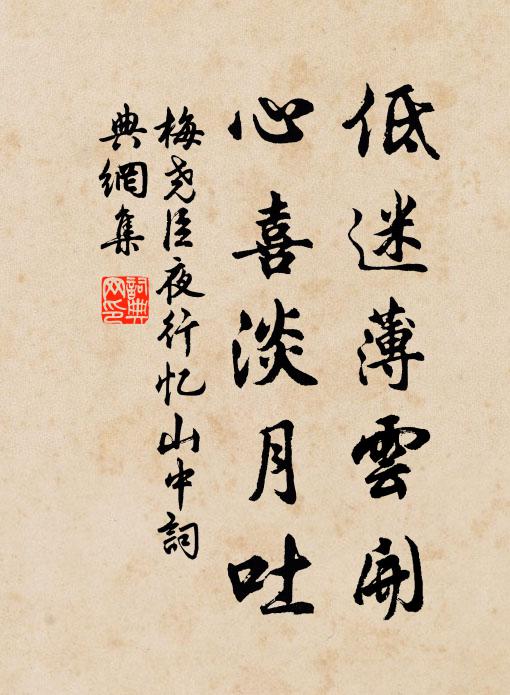 低迷薄雲開
心喜淡月吐
梅尧臣夜行忆山中詞
典網集
詞典
网印